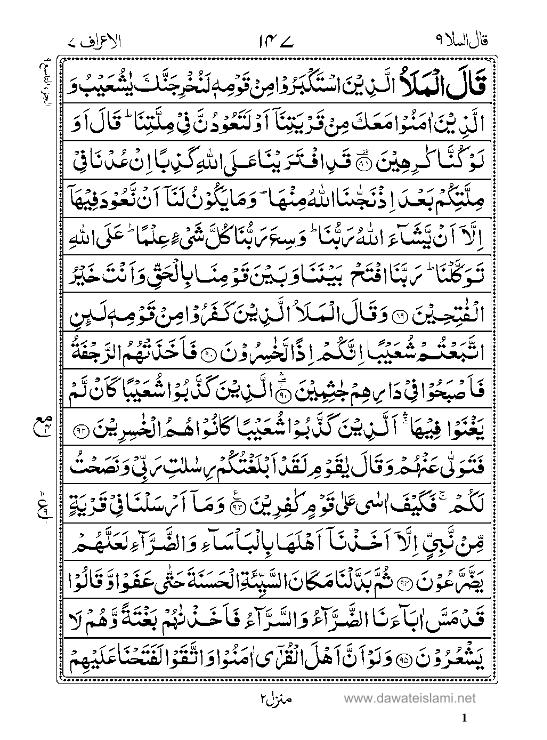 قال الملا ٩
١٤٧
الاعراف ٧
قَالَ الْمَلَاُ الَّذِيْنَ اسْتَكْبَرُوْا مِنْ قَوْمِهٖ لَنُخْرِجَنَّكَ يٰشُعَيْبُ وَ
الَّذِيْنَ اٰمَنُوْا مَعَكَ مِنْ قَرْيَتِنَاۤ اَوْ لَتَعُوْدُنَّ فِيْ مِلَّتِنَا ؕ قَالَ اَوَ
لَوْ كُنَّا كٰرِهِيْنَ ۟ قَدِ افْتَرَيْنَا عَلَى اللّٰهِ كَذِبًا اِنْ عُدْنَا فِيْ
مِلَّتِكُمْ بَعْدَ اِذْ نَجّٰىنَا اللّٰهُ مِنْهَا ؕ وَمَا يَكُوْنُ لَنَاۤ اَنْ نَّعُوْدَ فِيْهَاۤ
اِلَّاۤ اَنْ يَّشَآءَ اللّٰهُ رَبُّنَا ؕ وَسِعَ رَبُّنَا كُلَّ شَيْءٍ عِلْمًا ؕ عَلَى اللّٰهِ
تَوَكَّلْنَا ؕ رَبَّنَا افْتَحْ بَيْنَنَا وَبَيْنَ قَوْمِنَا بِالْحَقِّ وَاَنْتَ خَيْرُ
الْفٰتِحِيْنَ ۟۸۹ وَقَالَ الْمَلَاُ الَّذِيْنَ كَفَرُوْا مِنْ قَوْمِهٖ لَئِنِ
اتَّبَعْتُمْ شُعَيْبًا اِنَّكُمْ اِذًا لَّخٰسِرُوْنَ ۟۹۰ فَاَخَذَتْهُمُ الرَّجْفَةُ
فَاَصْبَحُوْا فِيْ دَارِهِمْ جٰثِمِيْنَ ۟۹۱ الَّذِيْنَ كَذَّبُوْا شُعَيْبًا كَاَنْ لَّمْ
يَغْنَوْا فِيْهَا ۚ اَلَّذِيْنَ كَذَّبُوْا شُعَيْبًا كَانُوْا هُمُ الْخٰسِرِيْنَ ۟۹۲
فَتَوَلّٰى عَنْهُمْ وَقَالَ يٰقَوْمِ لَقَدْ اَبْلَغْتُكُمْ رِسٰلٰتِ رَبِّيْ وَنَصَحْتُ
لَكُمْ ۚ فَكَيْفَ اٰسٰى عَلٰى قَوْمٍ كٰفِرِيْنَ ۟۹۳ وَمَاۤ اَرْسَلْنَا فِيْ قَرْيَةٍ
مِّنْ نَّبِيٍّ اِلَّاۤ اَخَذْنَاۤ اَهْلَهَا بِالْبَاْسَآءِ وَالضَّرَّآءِ لَعَلَّهُمْ
يَضَّرَّعُوْنَ ۟۹۴ ثُمَّ بَدَّلْنَا مَكَانَ السَّيِّئَةِ الْحَسَنَةَ حَتّٰى عَفَوْا وَّقَالُوْا
قَدْ مَسَّ اٰبَآءَنَا الضَّرَّآءُ وَالسَّرَّآءُ فَاَخَذْنٰهُمْ بَغْتَةً وَّهُمْ لَا
يَشْعُرُوْنَ ۟۹۵ وَلَوْ اَنَّ اَهْلَ الْقُرٰۤى اٰمَنُوْا وَاتَّقَوْا لَفَتَحْنَا عَلَيْهِمْ
منزل ٢
www.dawateislami.net
1